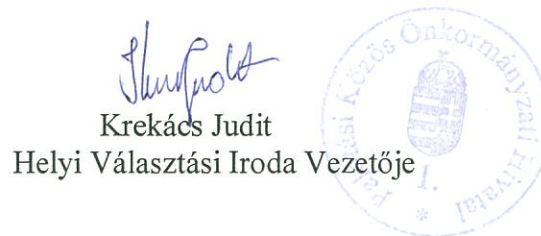 Krekács Judit
Helyi Választási Iroda Vezetője
Közös Önkormányzati Hivatal
1.